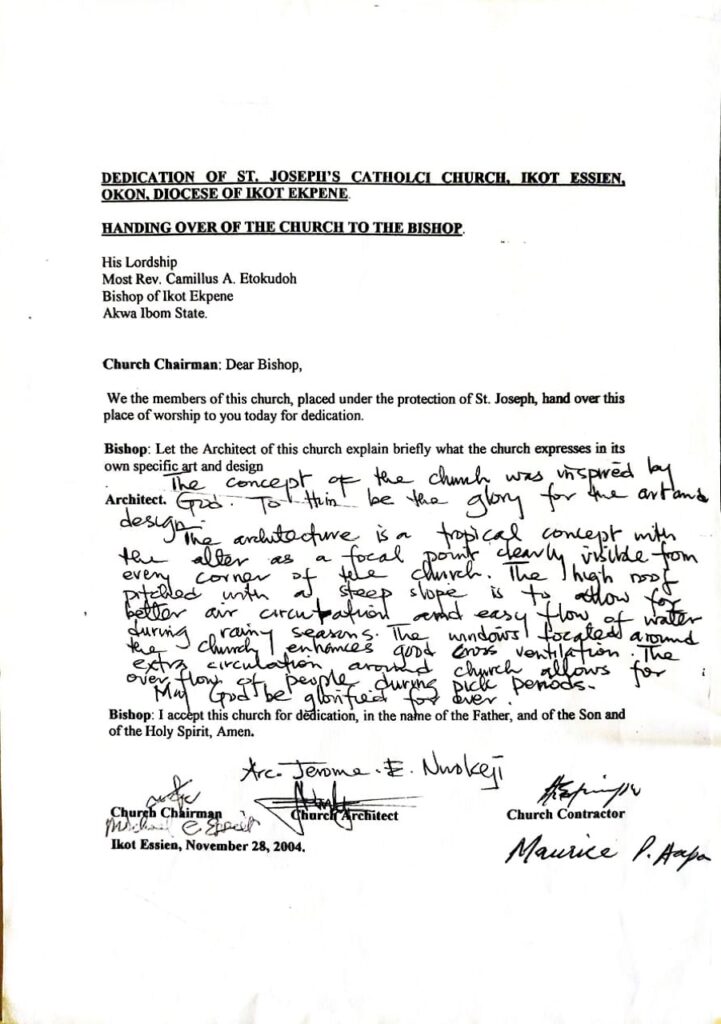 DEDICATION OF ST. JOSEPH'S CATHOLCI CHURCH, IKOT ESSIEN,
OKON, DIOCESE OF IKOT EKPENE.
HANDING OVER OF THE CHURCH TO THE BISHOP.
His Lordship
Most Rev. Camillus A. Etokudoh
Bishop of Ikot Ekpene
Akwa Ibom State.
Church Chairman: Dear Bishop,
We the members of this church, placed under the protection of St. Joseph, hand over this
place of worship to you today for dedication.
Bishop: Let the Architect of this church explain briefly what the church expresses in its
own specific art and design
The concept of the church was inspired by
Architect. God. To him be the glory for the art and
design.
The architecture is a tropical concept with
the alter as a focal point clearly visible from
every corner of the church. The high roof
pitched with a steep slope is to allow for
better air circulation and easy flow of water
during rainy seasons. The windows located around
the church enhances good cross ventilation. The
extra circulation around church allows for
over flow of people during pick periods.
May God be glorified for ever.
Bishop: I accept this church for dedication, in the name of the Father, and of the Son and
of the Holy Spirit, Amen.
Arc. Jerome. E. Nwokeji
Church Chairman Church Architect Church Contractor
Michael E.
Ikot Essien, November 28, 2004.
Maurice P.